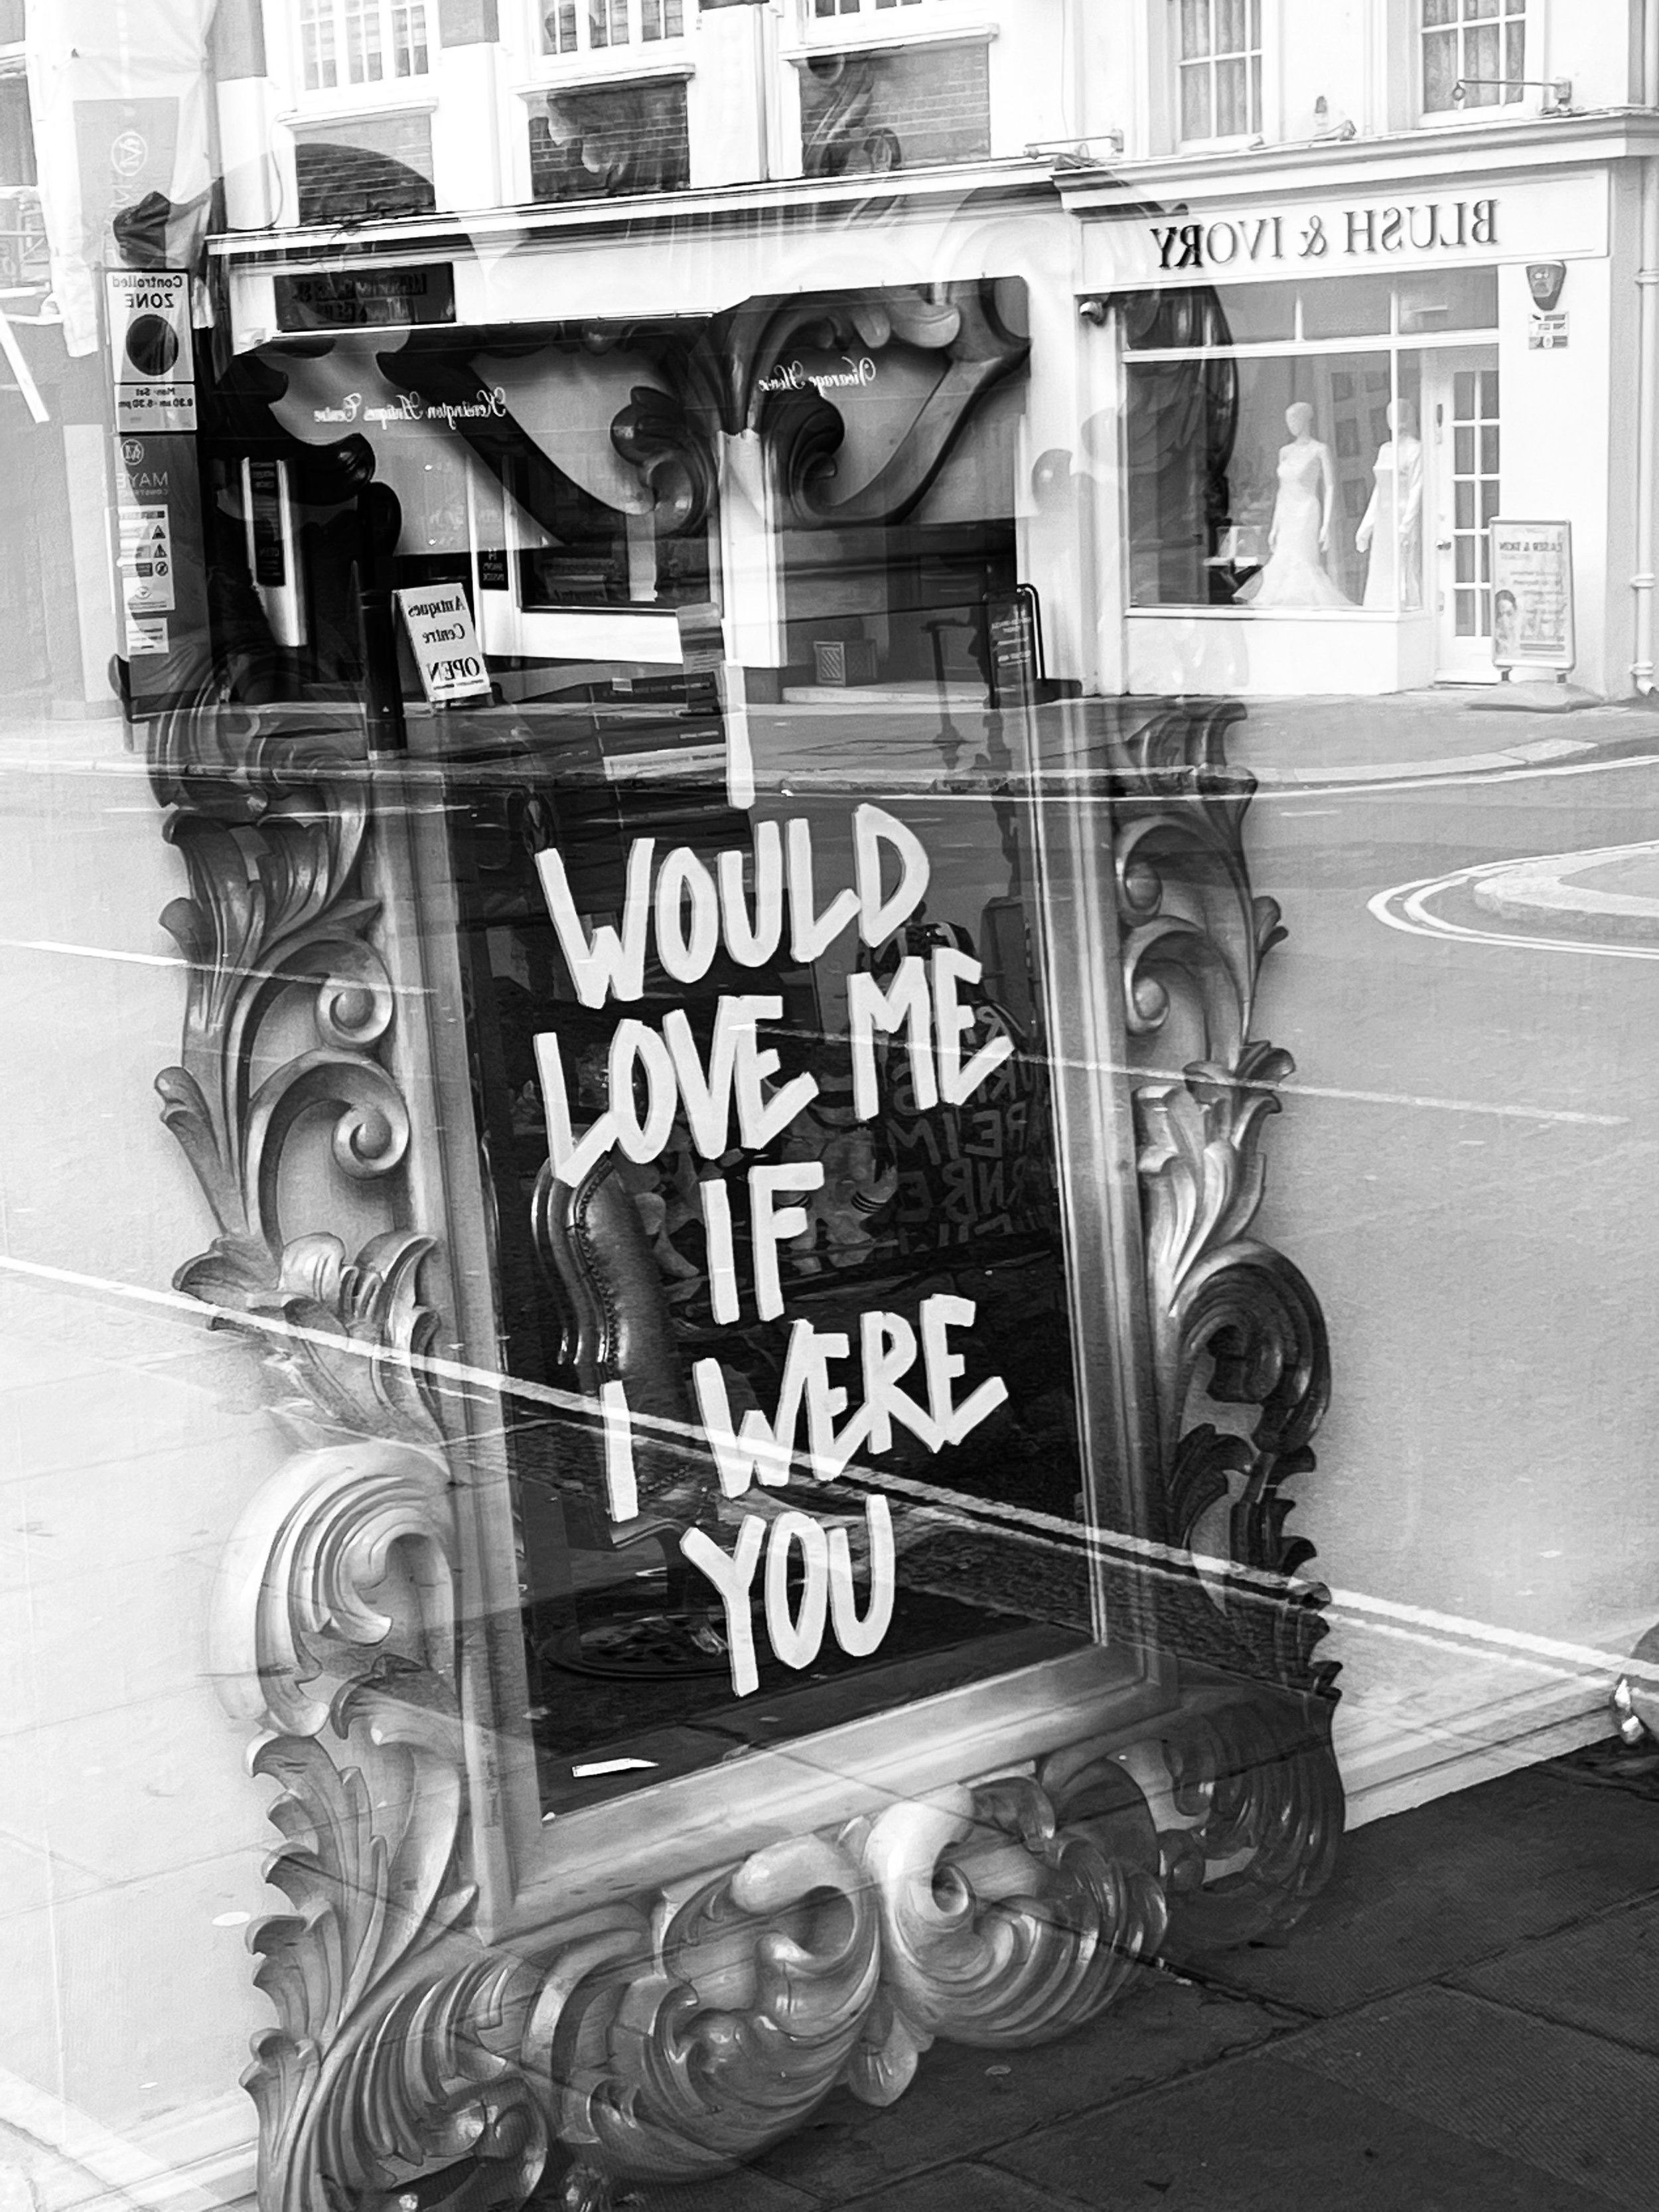 BLUSH & IVORY
Controlled
ZONE
Mon - Sat
8.30 am - 6.30 pm
Kensington Antiques Centre
Vicarage House
MAYER
Antiques
Centre
OPEN
LASER & SKIN
I
WOULD
LOVE ME
IF
I WERE
YOU